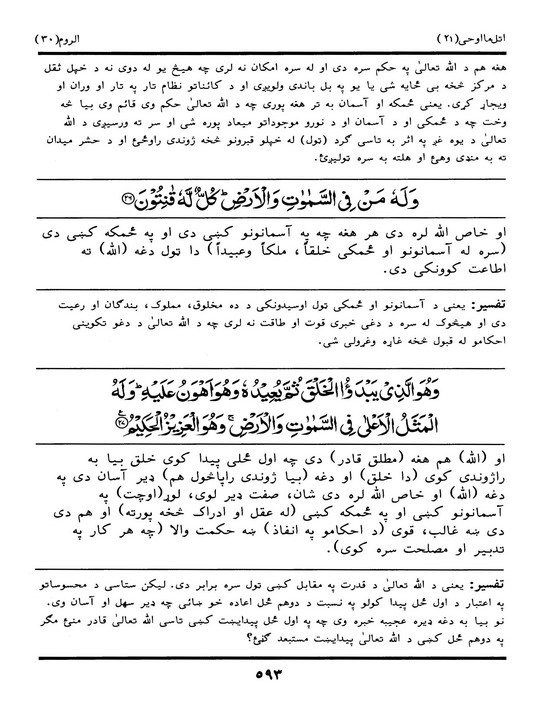 اتل‌مااوحی(۲۱) الروم(۳۰)
هغه هم د الله تعالیٰ په حکم سره دی او له سره امکان نه لری چه هیڅ یو له دوی نه د خپل ثقل
د مرکز څخه بی ځایه شی یا یو په بل باندی ولویږی او د کائناتو نظام تار په تار او وران او
ویجاړ کړی. یعنی ځمکه او آسمان به تر هغه پوری چه د الله تعالیٰ حکم وی قائم وی بیا څه
وخت چه د ځمکی او د آسمان او د نورو موجوداتو میعاد پوره شی او سر ته ورسیږی د الله
تعالیٰ د یوه غږ په اثر به تاسی گرد (تول) له خپلو قبرونو څخه ژوندی راوځئ او د حشر میدان
ته به مندی وهئ او هلته به سره تولیږئ.
وَلَهٗ مَنْ فِی السَّمٰوٰتِ وَالْاَرْضِ ؕ کُلٌّ لَّهٗ قٰنِتُوْنَ ﴿۲۶﴾
او خاص الله لره دی هر هغه چه په آسمانونو کښی دی او په ځمکه کښی دی
(سره له آسمانونو او ځمکی خلقاً، ملکاً وعبیداً) دا ټول دغه (الله) ته
اطاعت کوونکی دی.
تفسیر: یعنی د آسمانونو او ځمکی ټول اوسیدونکی د ده مخلوق، مملوک، بندگان او رعیت
دی او هیڅوک له سره د دغی خبری قوت او طاقت نه لری چه د الله تعالیٰ د دغو تکوینی
احکامو له قبول څخه غاړه وغړولی شی.
وَهُوَ الَّذِیْ یَبْدَؤُا الْخَلْقَ ثُمَّ یُعِیْدُهٗ وَهُوَ اَهْوَنُ عَلَیْهِ ؕ وَلَهُ
الْمَثَلُ الْاَعْلٰی فِی السَّمٰوٰتِ وَالْاَرْضِ ۚ وَهُوَ الْعَزِیْزُ الْحَکِیْمُ ﴿۲۷﴾
او (الله) هم هغه (مطلق قادر) دی چه اول ځلی پیدا کوی خلق بیا به
راژوندی کوی (دا خلق) او دغه (بیا ژوندی راپاڅول هم) ډیر آسان دی په
دغه (الله) او خاص الله لره دی شان، صفت ډیر لوی، لوړ(اوچت) په
آسمانونو کښی او په ځمکه کښی (له عقل او ادراک څخه پورته) او هم دی
دی ښه غالب، قوی (د احکامو په انفاذ) ښه حکمت والا (چه هر کار په
تدبیر او مصلحت سره کوی).
تفسیر: یعنی د الله تعالیٰ د قدرت په مقابل کښی ټول سره برابر دی. لیکن ستاسی د محسوساتو
په اعتبار د اول ځل پیدا کولو په نسبت د دوهم ځل اعاده خو ښائی چه ډیر سهل او آسان وی.
نو بیا به دغه ډیره عجیبه خبره وی چه په اول ځل پیدایښت کښی تاسی الله تعالیٰ قادر منئ مگر
په دوهم ځل کښی د الله تعالیٰ پیدایښت مستبعد گڼئ؟
۵۹۳